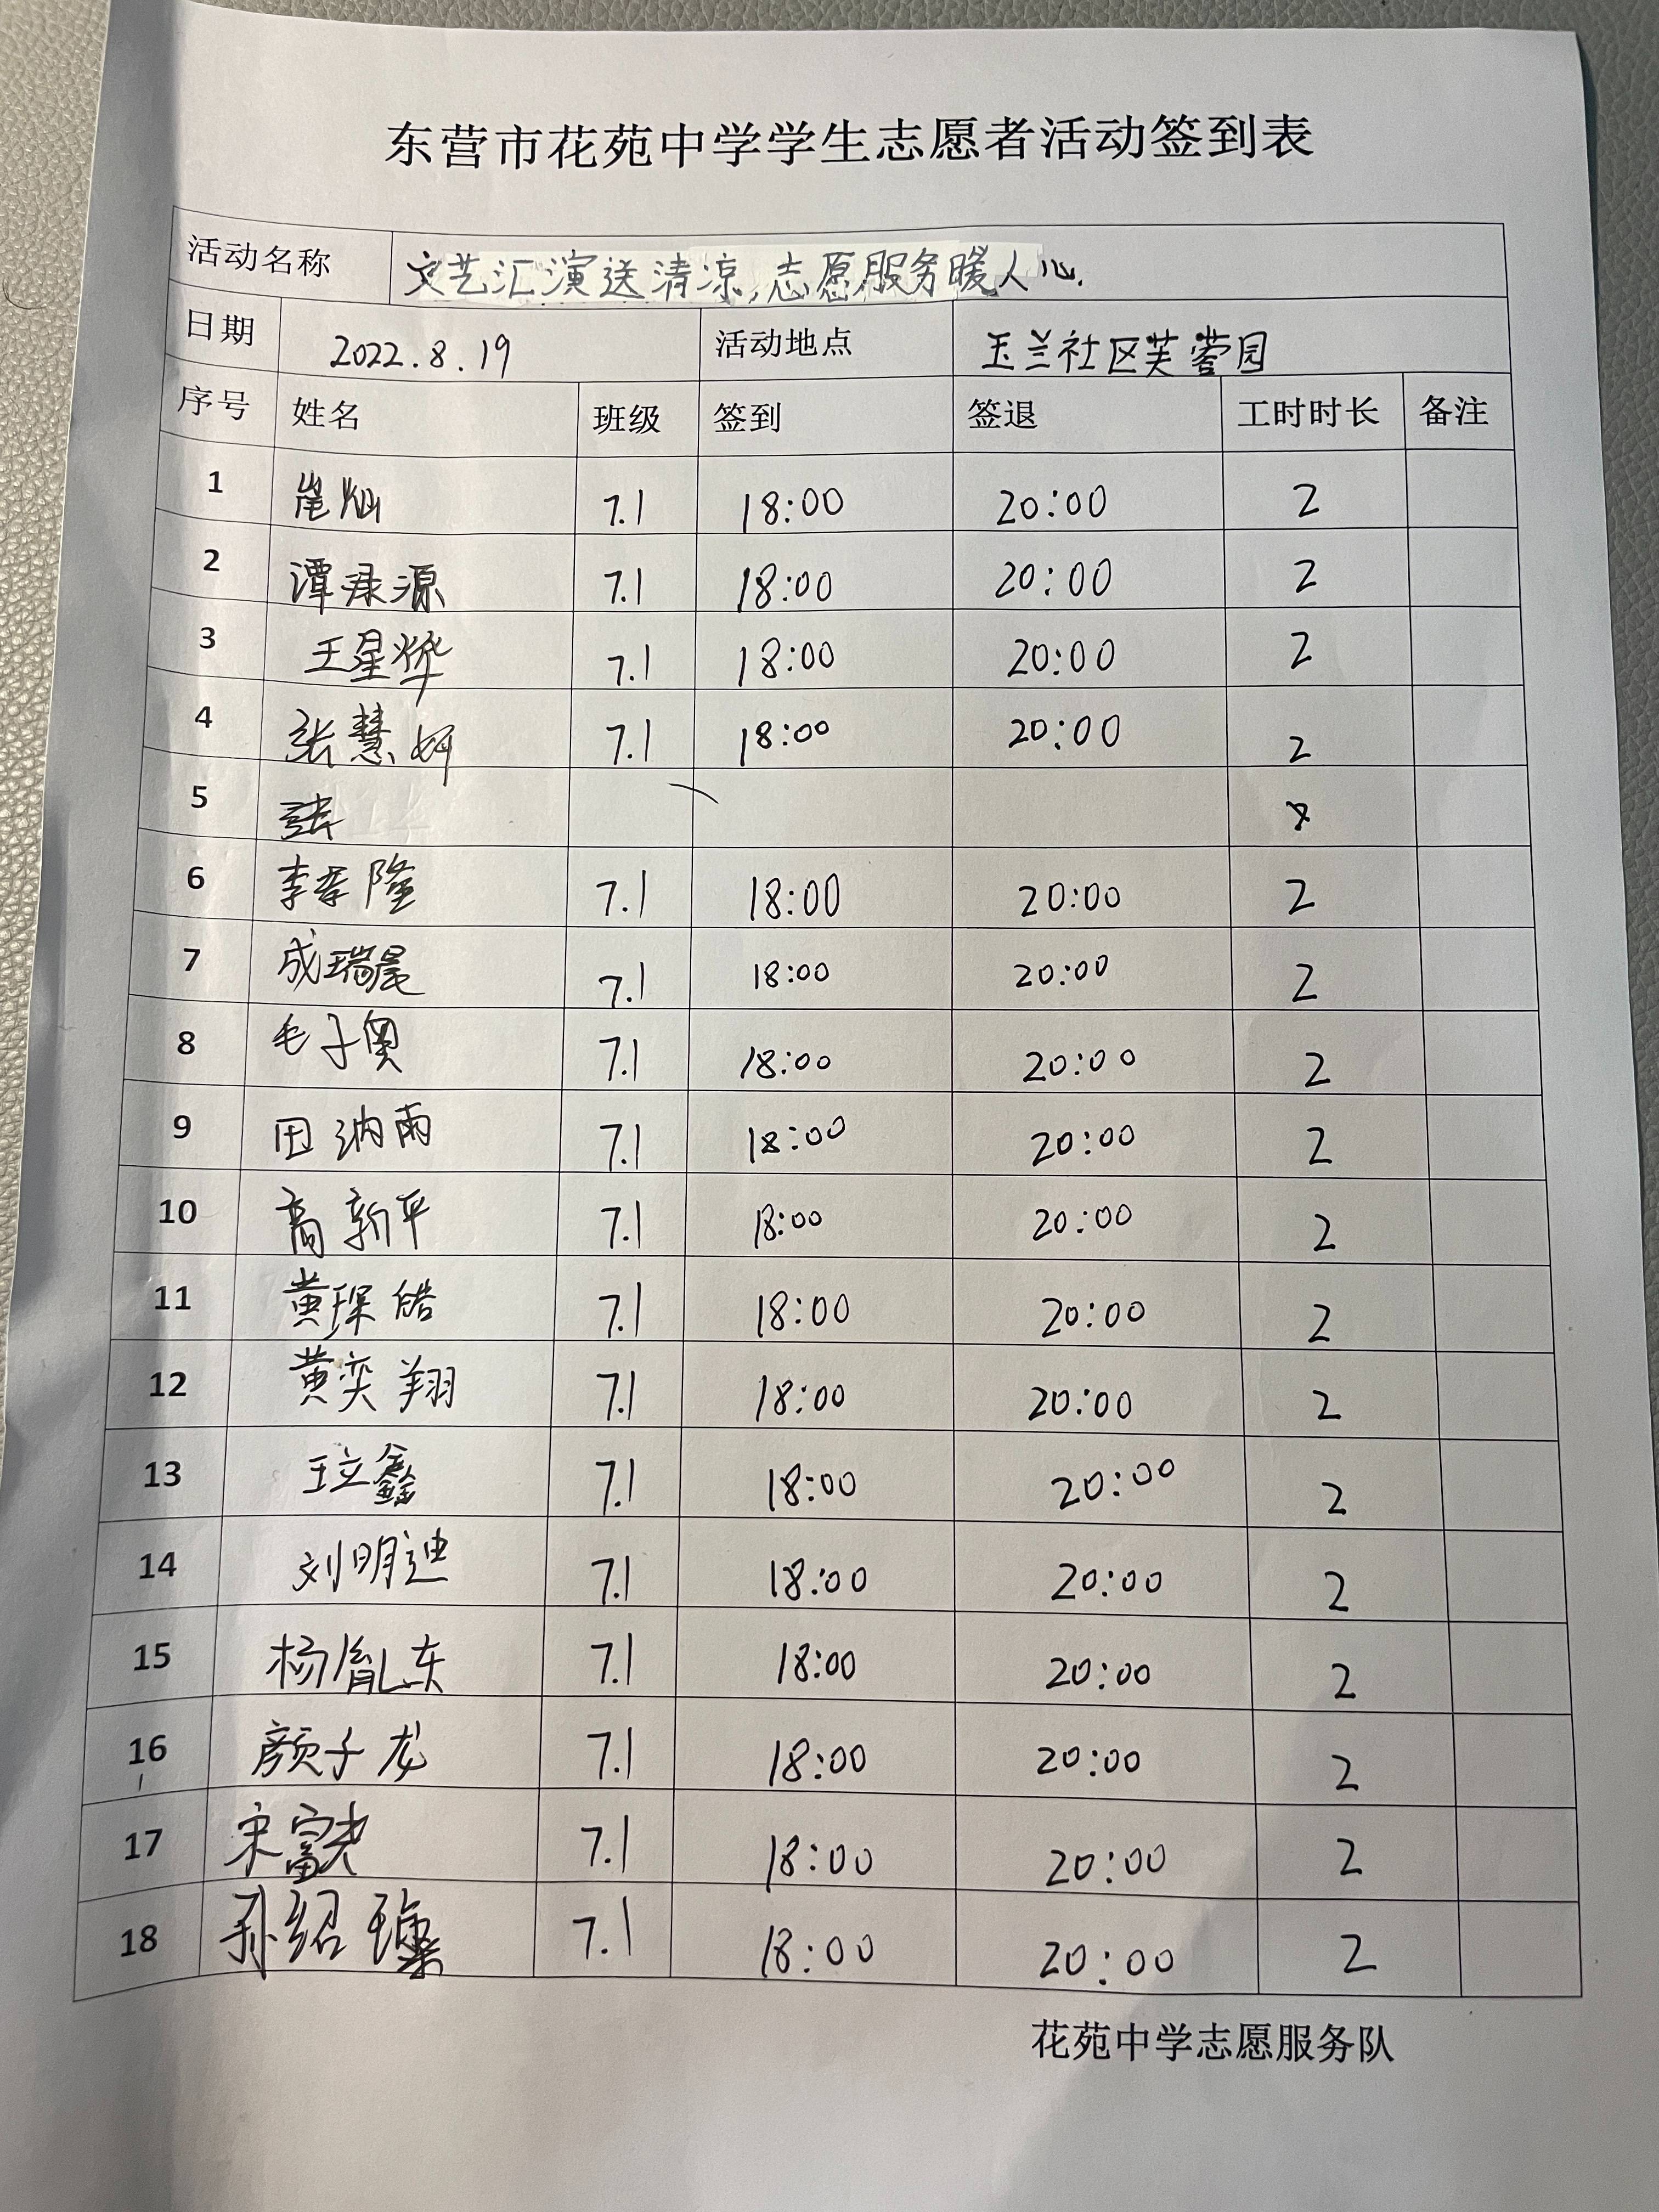 东营市花苑中学学生志愿者活动签到表
活动名称 文艺汇演送清凉,志愿服务暖人心.
日期 2022.8.19 活动地点 玉兰社区芙蓉园
序号 姓名 班级 签到 签退 工时时长 备注
1 7.1 18:00 20:00 2
2 谭渌源 7.1 18:00 20:00 2
3 王星烨 7.1 18:00 20:00 2
4 张慧妍 7.1 18:00 20:00 2
5
6 李孝隆 7.1 18:00 20:00 2
7 成瑞晨 7.1 18:00 20:00 2
8 毛子奥 7.1 18:00 20:00 2
9 田纳雨 7.1 18:00 20:00 2
10 高新平 7.1 18:00 20:00 2
11 黄琛皓 7.1 18:00 20:00 2
12 黄奕翔 7.1 18:00 20:00 2
13 王立鑫 7.1 18:00 20:00 2
14 刘明迪 7.1 18:00 20:00 2
15 杨胤东 7.1 18:00 20:00 2
16 颜子龙 7.1 18:00 20:00 2
17 宋富尧 7.1 18:00 20:00 2
18 孙绍 7.1 18:00 20:00 2
花苑中学志愿服务队